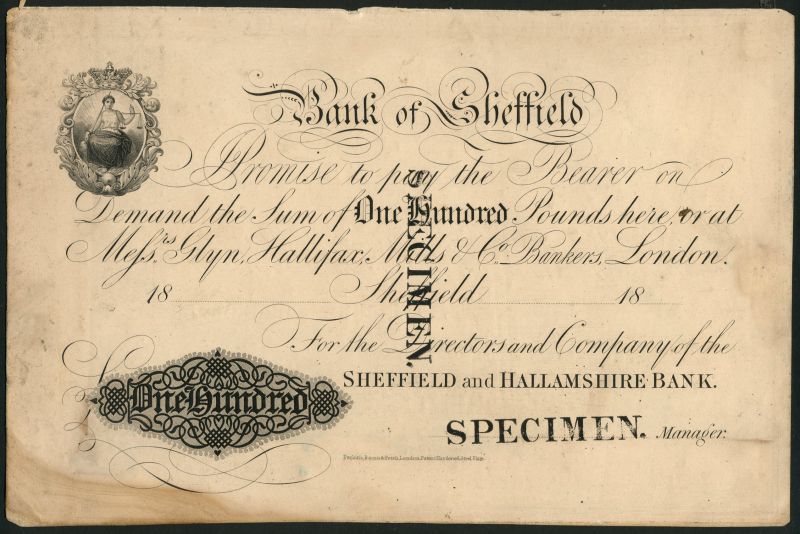 Bank of Sheffield
I Promise to pay the Bearer on
Demand the Sum of One Hundred Pounds here, or at
Messrs. Glyn, Hallifax, Mills & Co. Bankers, London.
18 Sheffield 18
For the Directors and Company of the
SHEFFIELD and HALLAMSHIRE BANK.
£ One Hundred
SPECIMEN. Manager.
SPECIMEN.
Perkins, Bacon & Petch, London, Patent Hardened Steel Plate.